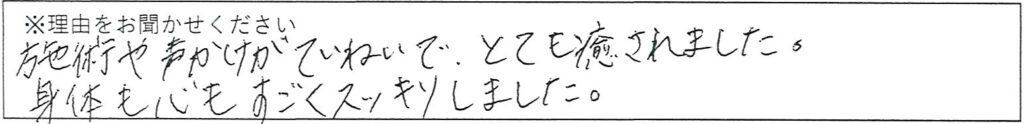 ※理由をお聞かせください
施術や声かけがていねいで、とても癒されました。
身体も心もすごくスッキリしました。